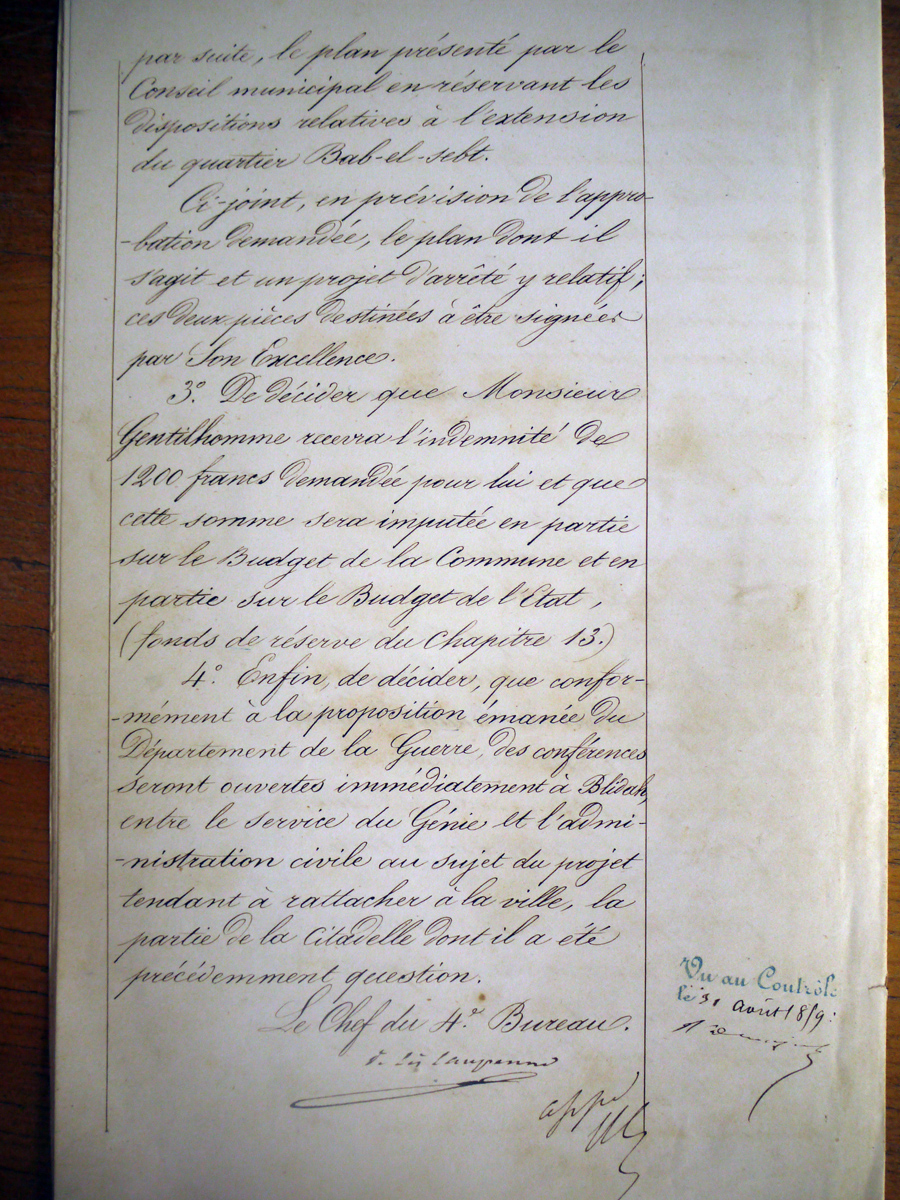 par suite, le plan présenté par le
Conseil municipal en réservant les
dispositions relatives à l'extension
du quartier Bab-el-sebt.
Ci-joint, en prévision de l'appro-
-bation demandée, le plan dont il
s'agit et un projet d'arrêté y relatif;
ces deux pièces destinées à être signées
par Son Excellence.
3.° De décider que Monsieur
Gentilhomme recevra l'indemnité de
1200 francs demandée pour lui et que
cette somme sera imputée en partie
sur le Budget de la Commune et en
partie sur le Budget de l'Etat,
(fonds de réserve du Chapitre 13.)
4.° Enfin, de décider, que confor-
-mément à la proposition émanée du
Département de la Guerre, des conférences
seront ouvertes immédiatement à Blidah,
entre le service du Génie et l'admi-
-nistration civile au sujet du projet
tendant à rattacher à la ville, la
partie de la Citadelle dont il a été
précédemment question.
Le Chef du 4.e Bureau.
Vu au Contrôle
le 31 août